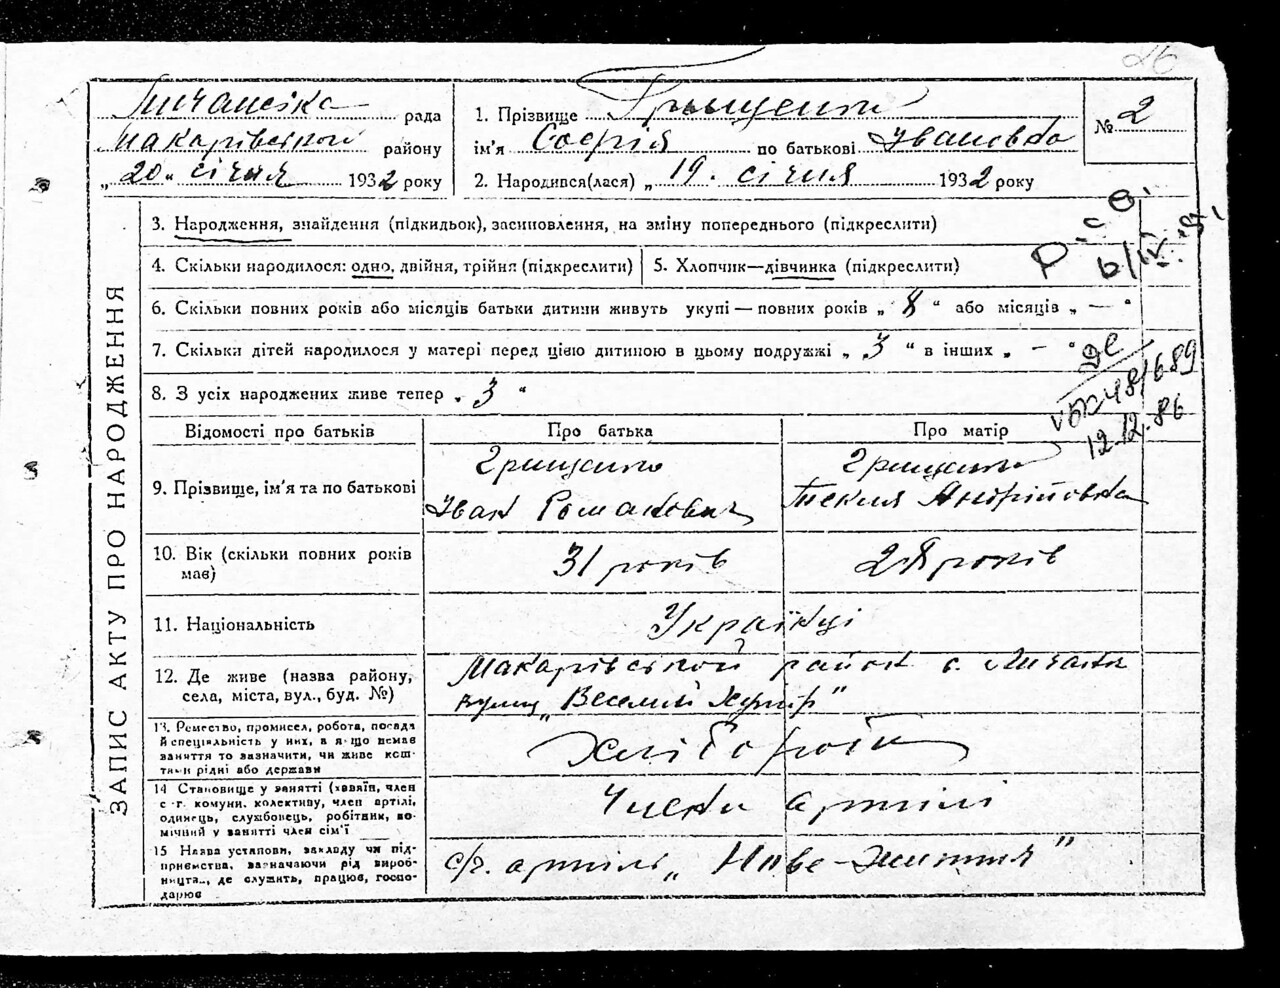 26
Личанська рада
Макарівськой району
„20“ січня 1932 року
1. Прізвище Грищенко
ім'я Софія по батькові Івановна
2. Народився(лася) „19. січня 1932 року
№ 2
ЗАПИС АКТУ ПРО НАРОДЖЕННЯ
3. Народження, знайдення (підкидьок), засиновлення, на зміну попереднього (підкреслити)
4. Скільки народилося: одно, двійня, трійня (підкреслити)
5. Хлопчик—дівчинка (підкреслити)
6. Скільки повних років або місяців батьки дитини живуть укупі — повних років „ 8 “ або місяців „ — “
7. Скільки дітей народилося у матері перед цією дитиною в цьому подружжі „ 3 “ в інших „ — “
8. З усіх народжених живе тепер „ 3 “
12.12.86
Відомості про батьків
Про батька
Про матір
9. Прізвище, ім'я та по батькові
Грищенко
Іван Романович
Грищенко
Текля Андрійовна
10. Вік (скільки повних років
має)
31 років
28 років
11. Національність
Українці
12. Де живе (назва району,
села, міста, вул., буд. №)
Макарівськой район с. Личанка
вулиц „Веселий Хутір"
13. Ремество, промисел, робота, посада
й спеціяльність у них, а якщо немає
заняття то зазначити, чи живе кош-
тами рідні або держави
Хлібороби
14 Становище у занятті (хазяїн, член
с.-г. комуни, колективу, член артілі,
одинець, службовець, робітник, по-
мічний у занятті член сім'ї
Члени артілі
15 Назва установи, закладу чи під-
приємства, зазначаючи рід вироб-
ництва, де служить, працює, госпо-
дарює
с/г. артіль „Нове-Життя"